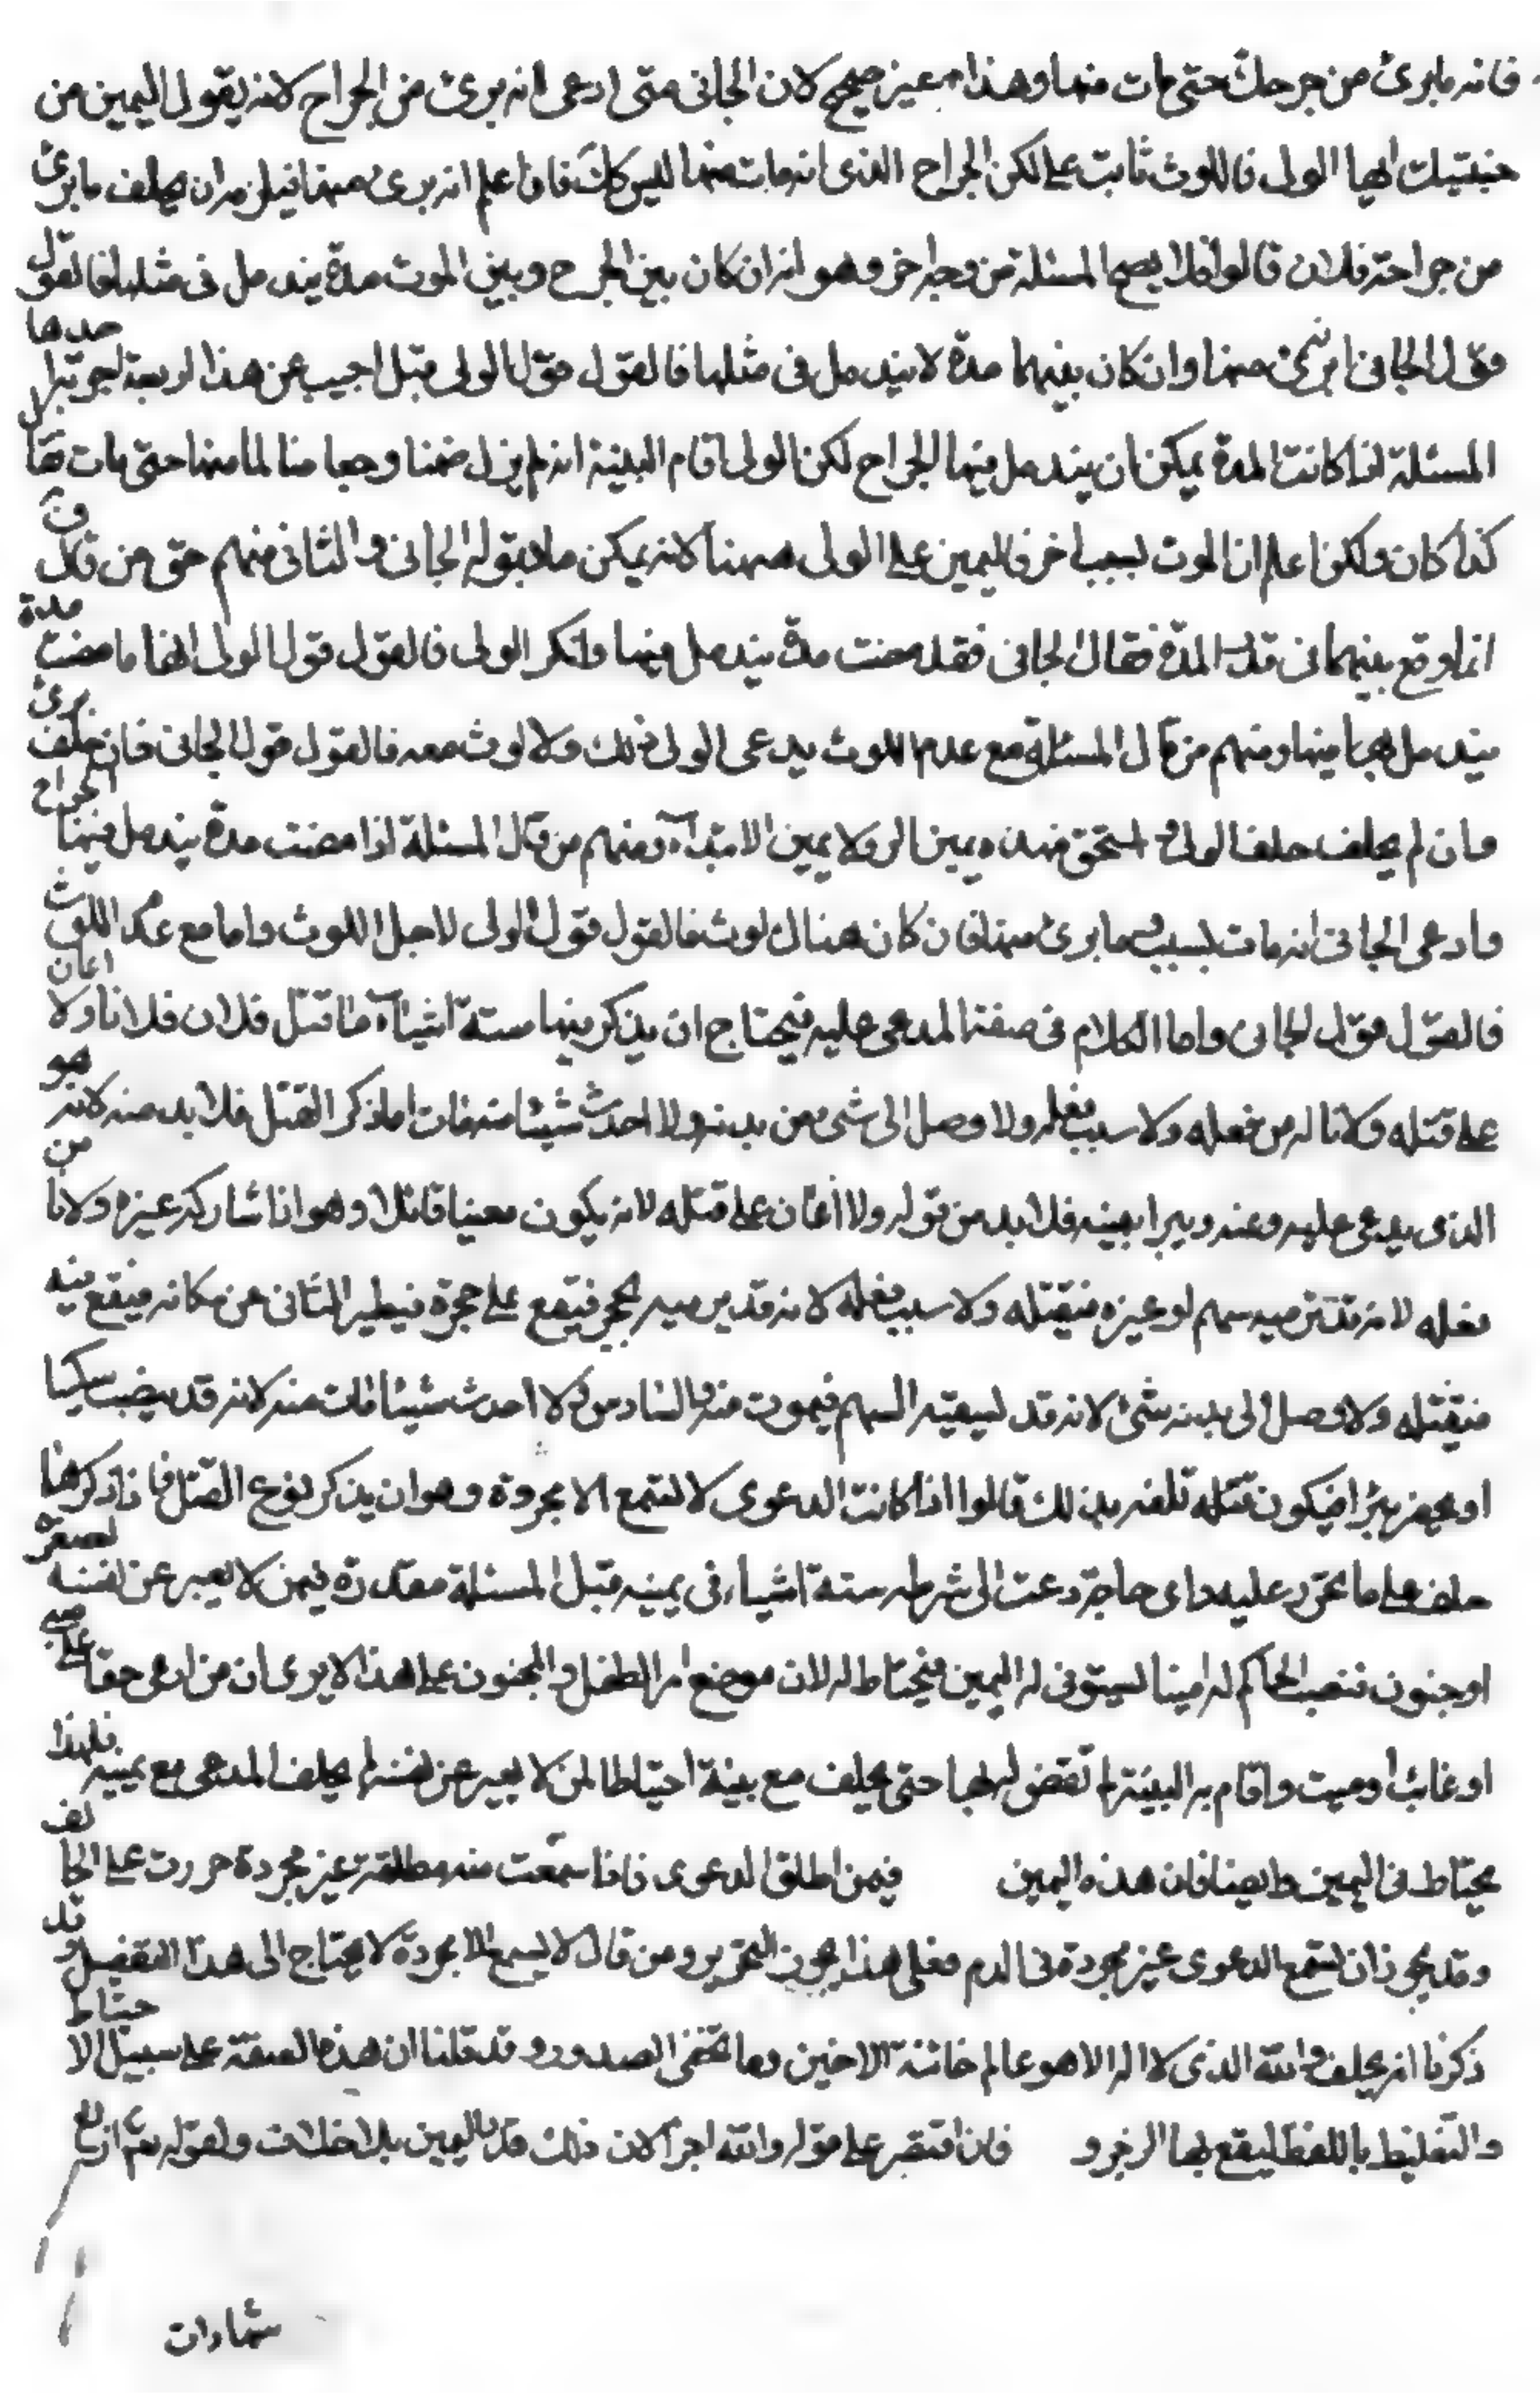 فانه ما برئ من جرحك حتى مات منها وهذا غير صحيح لان الجانى متى ادعى انه برئ من الجراح لانه يقول اليمين من
حنبتيك ايها الولى فاللوث ثابت على لكن الجراح الذى انه مات منها ليس كك فانا اعلم انه برئ منها فيلزمه ان يحلف ما برئ
من جراحة فلان قالوا فلا يصح المسئلة من وجه اخر وهو انه ان كان بين الجرح وبين الموت مدة يندمل فى مثلها فالقول
قول الجانى ما برئ منها وان كان بينهما مدة لا يندمل فى مثلها فالقول قول الولى قيل اجيب عن هذا اربعة اجوبة احدها
المسئلة اذا كانت المدة يمكن ان يندمل فيها الجراح لكن الولى اقام البينة انه لم يزل ضمنا وجعا منا لما منها حتى مات قال
كذا كان ولكن اعلم ان الموت لسبب اخر فاليمين على الولى ههنا لانه يمكن ما يقوله الجانى والثانى منهم حتى من قال
انما وقع بينهما فى قدر المدة فقال الجانى فقد مضت مدة يندمل فيها وانكر الولى فالقول قول الولى انها ما مضت مدة
يندمل فيها ومنهم من قال المسئلة مع عدم اللوث يدعى الولى ذلك ولا لوث معه فالقول قول الجانى فان حلف برئ
وان لم يحلف حلف الولى استحق فهذه يمين الرد لا يمين الابتدآء ومنهم من قال المسئلة اذا مضت مدة يندمل فيها الجراح
وادعى الجانى انه مات بسبب ما برئ منها فان كان هناك لوث فالقول قول الولى لاجل اللوث واما مع عدم اللوث
فالقول قول الجانى واما الكلام فى صفة المدعى عليه فيحتاج ان يذكر فيها ستة اشيآء ما قتل فلان فلانا ولا اعان
على قتله ولا ناله من فعله ولا سبب فعله ولا وصل الى شئ من بدنه ولا احدث شيئا منه فمات اما ذكر القتل فلا بد منه لانه هو
الذى يدعى عليه وعنه ويبرا بيمينه فلا بد من قوله ولا اعان على قتله لانه يكون معينا قاتلا وهو اذا شاركه غيره ولا نا من
فعله لانه قد يرميه بسهم او غيره فيقتله ولا سبب فعله لانه قد يرميه بحجر فيقع على حجرة فيطير الثانى عن مكانه فيقع فيه
فيقتله ولا وصل الى بدنه شئ لانه قد يسقيه السهم فيموت منه والسادس ولا احدث شيئا مات منه لانه قد ينصب سكينا
او يحفر بئرا فيكون قتله تلفه بذلك قالوا اذا كانت الدعوى لا تسمع الا مجردة وهو ان يذكر نوع القتل فاذا ذكرها
حلف على ما تحرر عليه داى حاجة دعت الى شرطه ستة اشياء فى يمينه قيل المسئلة مقدرة فيمن لا يعبر عن نفسه لصغر
او جنون فنصب الحاكم له امينا ليستوفى له اليمين فيحتاط له لان موضع امر الطفل والمجنون على هذا الا يرى ان من ادعى حقا على صبى
او غائب او ميت واقام به البينة لم تقض له بها حتى يحلف مع بينة احتياطا لمن لا يعبر عن نفسه لم يحلف المدعى مع بينه فلهذا
يحتاط فى اليمين وايضا فان هذه اليمين فيمن اطلق الدعوى فاذا سمعت منه مطلقة غير مجردة حررت على الحالف
وقد يجوز ان تسمع الدعوى غير مجردة فى الدم فعلى هذا يجوز التحرير ومن قال لا يسمع الا مجردة لا يحتاج الى هذا التفصيل وقد
ذكرنا انه يحلف والله الذى لا اله الا هو عالم خائنة الاعين وما تخفى الصدور وقد قلنا ان هذه الصفة على سبيل الاحتياط
والتغليظ باللفظ ليقع بها الزجر و فان اقتصر على قوله والله اجزا لان ذلك قدر اليمين بلا خلاف ولقوله تع اربع
شهادات